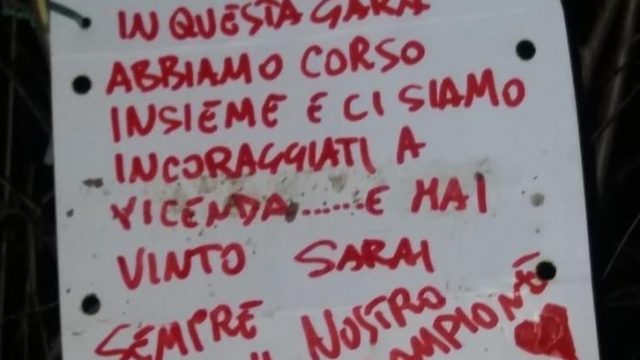 IN QUESTA GARA
ABBIAMO CORSO
INSIEME E CI SIAMO
INCORAGGIATI A
VICENDA......E HAI
VINTO SARAI
SEMPRE
IL NOSTRO
CAMPIONE